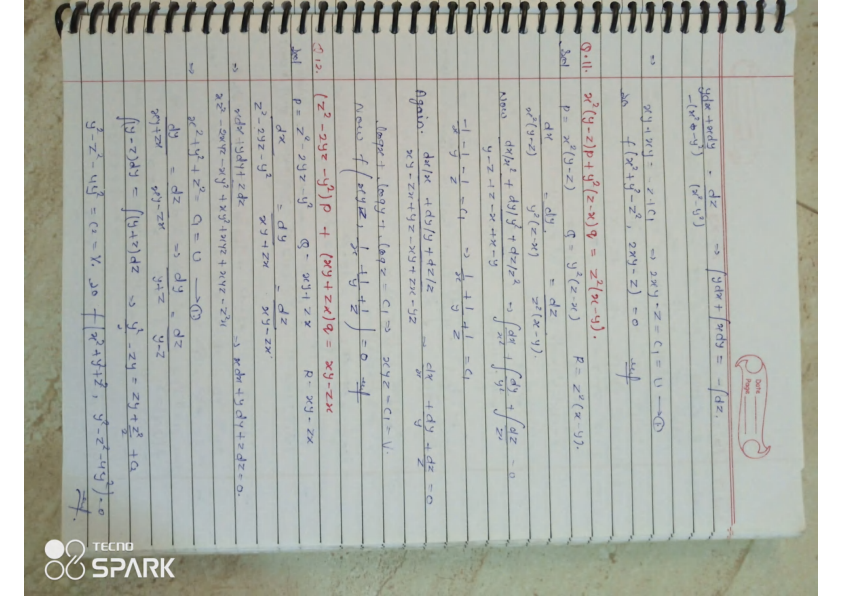 Date
Page
ydx + xdy / -(x²+y²) = dz / (x²-y²) ⇒ ∫ydx + ∫xdy = -∫dz.
xy + xy = -z + C₁ ⇒ 2xy + z = C₁ = u → ①
so f(x²+y²-z², 2xy-z) = 0
Q.11. x²(y-z)p + y²(z-x)q = z²(x-y).
Sol P = x²(y-z) Q = y²(z-x) R = z²(x-y).
dx / x²(y-z) = dy / y²(z-x) = dz / z²(x-y).
Now dx/x² + dy/y² + dz/z² / y-z+z-x+x-y ⇒ ∫dx/x² + ∫dy/y² + ∫dz/z² = 0
-1/x -1/y -1/z = C₁ ⇒ 1/x + 1/y + 1/z = C₁
Again: dx/x + dy/y + dz/z / xy-zx+yz-xy+zx-yz ⇒ dx/x + dy/y + dz/z = 0
logx + logy + logz = C₁ ⇒ xyz = C₁ = v.
Now f(xyz, 1/x + 1/y + 1/z) = 0
Q.12. (z²-2yz-y²)p + (xy+zx)q = xy-zx
Sol P = z²-2yz-y² Q = xy+zx R = xy-zx
dx / z²-2yz-y² = dy / xy+zx = dz / xy-zx.
⇒ xdx+ydy+zdz / xz²-2xyz-xy²+xy²+xyz+xyz-z²x ⇒ xdx+ydy+zdz=0.
x²+y²+z² = C₁ = u → ①
⇒ dy / xy+zx = dz / xy-zx ⇒ dy / y+z = dz / y-z
∫(y-z)dy = ∫(y+z)dz ⇒ y²/2 - zy = zy + z²/2 + C₁
y²-z²-4y² = C₁ = v. so f(x²+y²+z², y²-z²-4y²) = 0
TECNO
SPARK